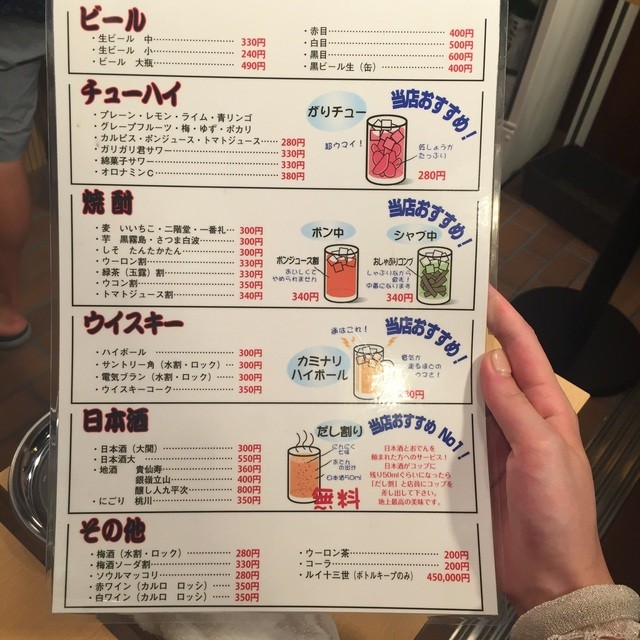 ビール
・生ビール 中 330円
・生ビール 小 240円
・ビール 大瓶 490円
・赤目 400円
・白目 500円
・黒目 600円
・黒ビール生（缶） 400円
チューハイ
・プレーン・レモン・ライム・青リンゴ
・グレープフルーツ・梅・ゆず・ポカリ
・カルピス・ポンジュース・トマトジュース 280円
・ガリガリ君サワー 330円
・綿菓子サワー 330円
・オロナミンC 380円
がりチュー
当店おすすめ！
超ウマイ！
たっぷり
280円
焼酎
・麦 いいちこ・二階堂・一番札 300円
・芋 黒霧島・さつま白波 300円
・しそ たんたかたん 300円
・ウーロン割 330円
・緑茶（玉露）割 330円
・ウコン割 350円
・トマトジュース割 340円
ポン中
ポンジュース割
おいしくて
やめられません
340円
当店おすすめ！
シャブ中
おしゃぶりコンブ
しゃぶりながら
飲む！
中毒になります
340円
ウイスキー
・ハイボール 300円
・サントリー角（水割・ロック） 350円
・電気ブラン（水割・ロック） 300円
・ウイスキーコーク 350円
カミナリ
ハイボール
当店おすすめ！
電気が
走るほどの
ウマさ！
日本酒
・日本酒（大関） 300円
・日本酒大 550円
・地酒 貴仙寿 360円
銀嶺立山 400円
醸し人九平次 800円
・にごり 桃川 350円
だし割り
にんにく
七味
おでん
の出汁
日本酒50ml
当店おすすめ No1！
日本酒とおでんを
頼まれた方へのサービス！
日本酒がコップに
残り50mlぐらいになったら
「だし割」と店員にコップを
差し出して下さい。
地上最高の美味です。
その他
・梅酒（水割・ロック） 280円
・梅酒ソーダ割 330円
・ソウルマッコリ 280円
・赤ワイン（カルロ ロッシ） 350円
・白ワイン（カルロ ロッシ） 350円
・ウーロン茶 200円
・コーラ 200円
・ルイ十三世（ボトルキープのみ） 450,000円